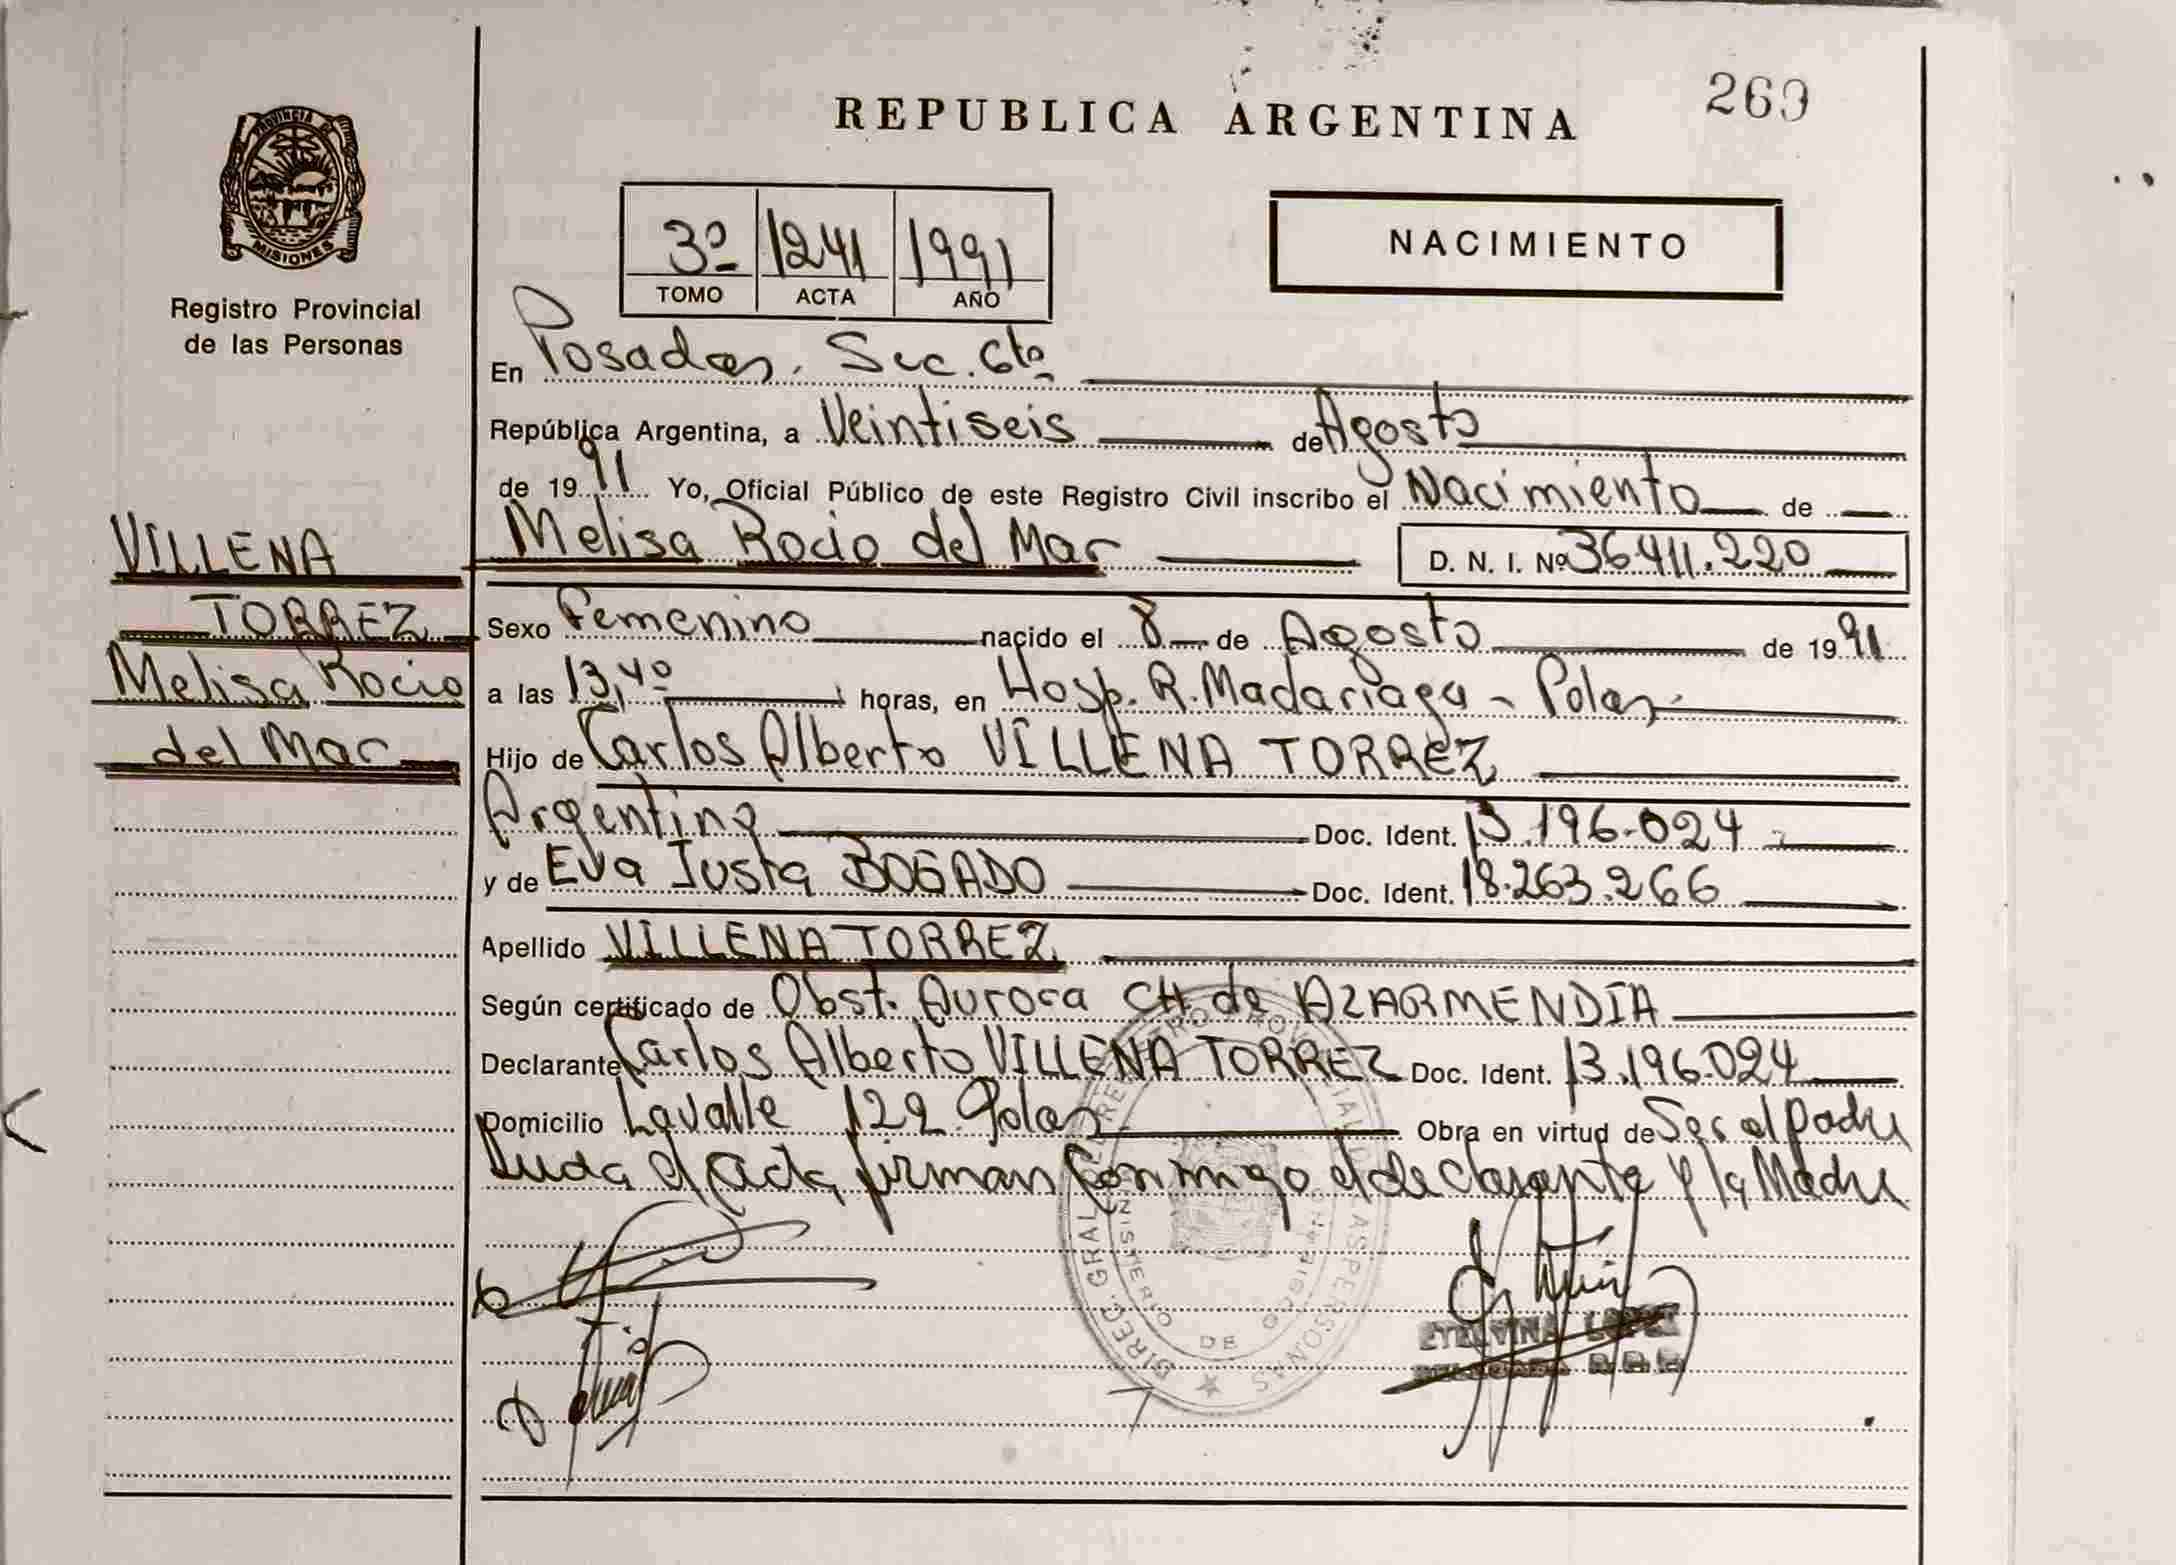 269
REPUBLICA ARGENTINA
PROVINCIA DE
MISIONES
Registro Provincial
de las Personas
3º 1241 1991
TOMO ACTA AÑO
NACIMIENTO
En Posadas. Sec. 6ta
República Argentina, a Veintiseis de Agosto
de 1991 Yo, Oficial Público de este Registro Civil inscribo el Nacimiento de
Melisa Rocio del Mar D. N. I. Nº 36.411.220
VILLENA
TORREZ
Melisa Rocio
del Mar
Sexo Femenino nacido el 8 de Agosto de 1991
a las 13,40 horas, en Hosp. R. Madariaga - Pdas.
Hijo de Carlos Alberto VILLENA TORREZ
Argentino Doc. Ident. 13.196.024
y de Eva Justa BOGADO Doc. Ident. 18.263.266
Apellido VILLENA TORREZ
Según certificado de Obst. Aurora CH. de AZARMENDIA
Declarante Carlos Alberto VILLENA TORREZ Doc. Ident. 13.196.024
Domicilio Lavalle 122 Pdas Obra en virtud de Ser el padre
Leida el acta, firman conmigo el declarante y la Madre
DIREC. GRAL. REGISTRO PROVINCIAL DE LAS PERSONAS
MINISTERIO DE GOBIERNO
ETELVINA LOPEZ